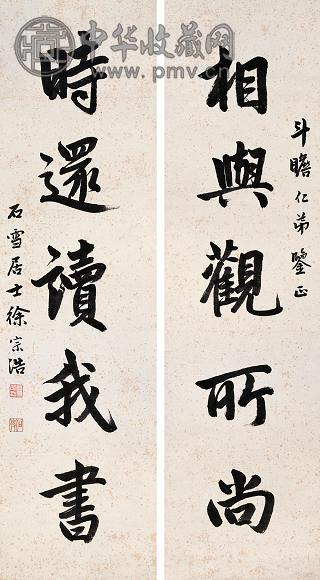 中华收藏网
www.pmv.cn
斗瞻仁弟鑒正
相與觀所尚
時還讀我書
石雪居士徐宗浩